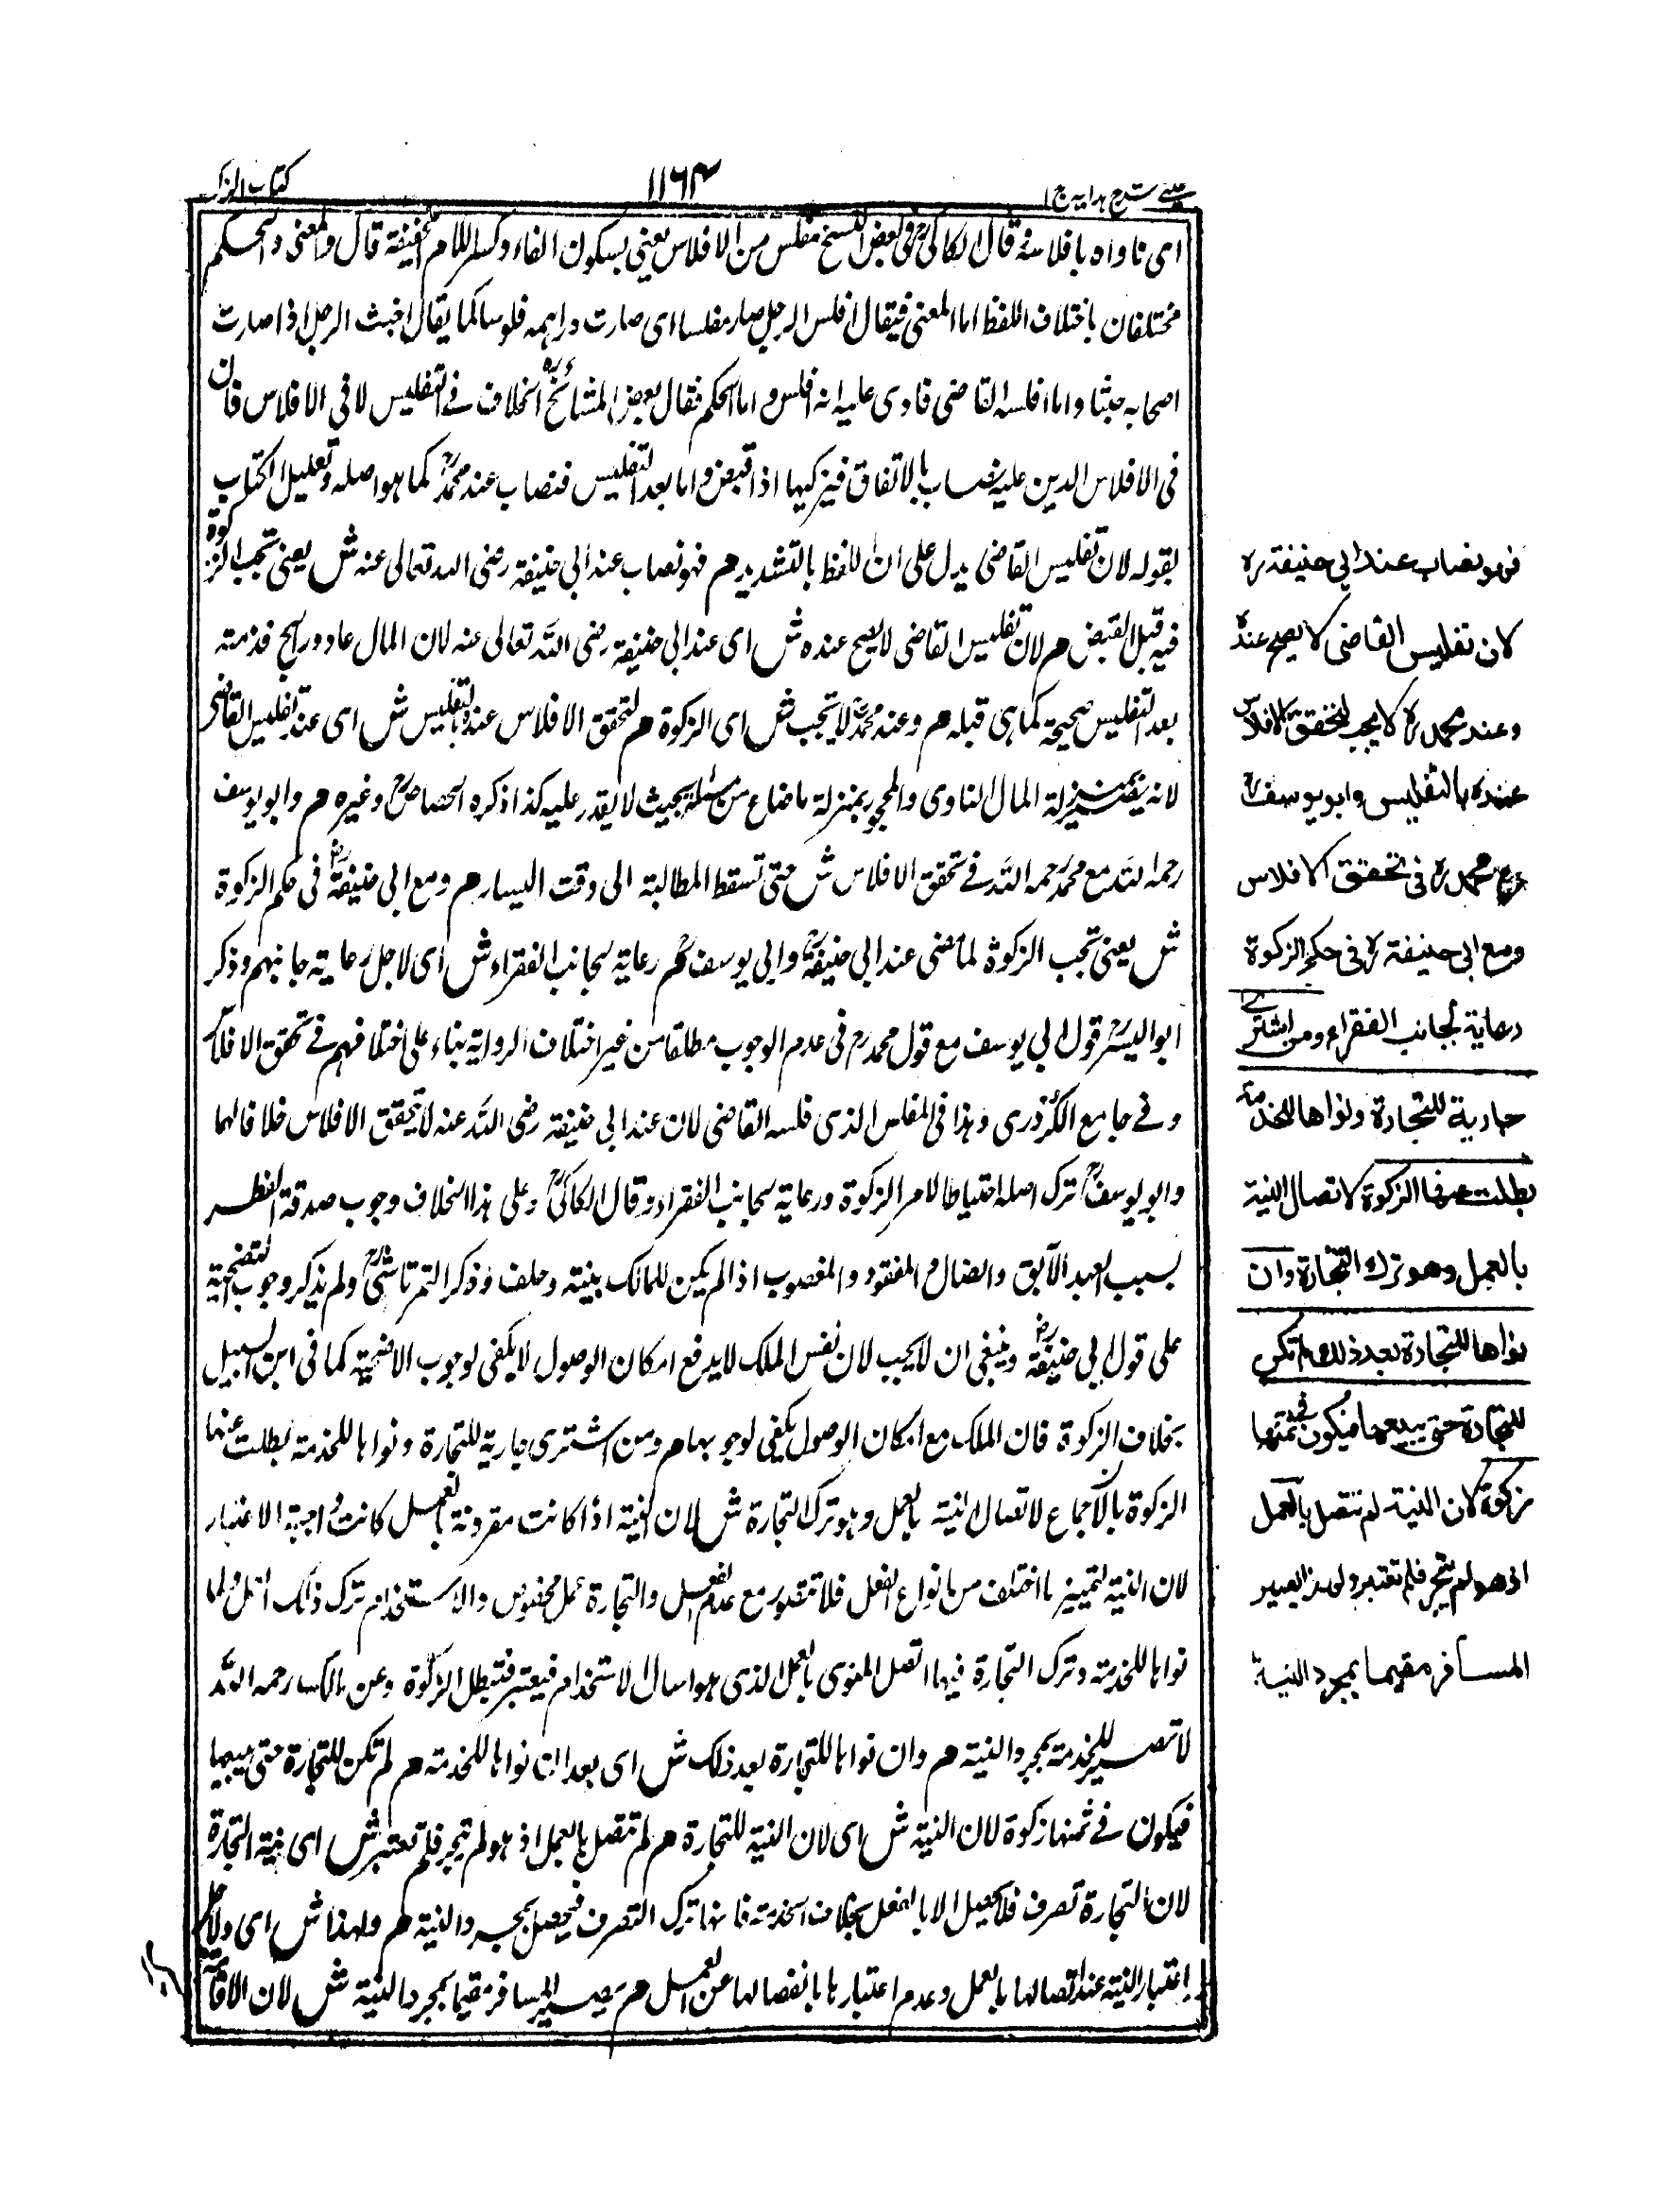 عینی شرح ہدایہ ج ۱
۱۱۶۴
کتاب الزک
ای ناداه بافلاسه قال الکاکی رح وفی بعض النسخ مفلس من الافلاس یعنی بسکون الفاء وکسر اللام الخفیفة قال والمعنی والحکم
مختلفان باختلاف اللفظ اما المعنی فیقال افلس الرجل صار مفلسا ای صارت دراهمه فلوسا کما یقال اخبث الرجل اذا صارت
اصحابه خبثا واما افلسه القاضی نادی علیه انه افلس واما الحکم فقال بعض المشائخ رہ الخلاف فے التفلیس لا فی الافلاس فان
فی الافلاس الدین علیه نصاب بالاتفاق فیزکیها اذا قبض واما بعد التفلیس فنصاب عند محمد رح کما هو اصله وتعلیل الکتاب
بقوله لان تفلیس القاضی یدل علی ان اللفظ بالتشدید م فهو نصاب عند ابی حنیفة رضی الله تعالی عنه ش یعنی تجب الزکوة
فیه قبل القبض م لان تفلیس القاضی لا یصح عنده ش ای عند ابی حنیفة رضی الله تعالی عنه لان المال غاد ورائح فذمته
بعد التفلیس صحیحة کما هی قبله م وعند محمد رح لا تجب ش ای الزکوة م لتحقق الافلاس عنده بالتفلیس ش ای عند تفلیس القاضی
لانه یصیر بمنزلة المال التاوی والمجحور بمنزلة ما ضاع من ماله بحیث لا یقدر علیه کذا ذکره الجصاص رح وغیره م وابو یوسف
رحمه الله مع محمد رحمه الله فے تحقق الافلاس ش حتی تسقط المطالبة الی وقت الیسار م ومع ابی حنیفة رض فی حکم الزکوة
ش یعنی تجب الزکوة لما مضی عند ابی حنیفة رح وابی یوسف رح م رعایة لجانب الفقراء ش ای لاجل رعایة جانبهم وذکر
ابو الیسر رح قول ابی یوسف مع قول محمد رح فی عدم الوجوب مطلقا من غیر اختلاف الروایة بناء علی اختلافهم فے تحقق الافلاس
وفے جامع الکردری وهذا فی المفلس الذی فلسه القاضی لان عند ابی حنیفة رضی الله عنه لا یتحقق الافلاس خلافا لهما
وابو یوسف رح ترک اصله احتیاطا لامر الزکوة ورعایة لجانب الفقراء وقال الکاکی رح وعلی هذا الخلاف وجوب صدقة الفطر
بسبب العبد الآبق والضال والمفقود والمغصوب اذا لم یکن للمالک بینة وحلف وذکر التمرتاشی رح ولم یذکر وجوب التضحیة
علی قول ابی حنیفة رض وینبغی ان لا یجب لان نفس الملک لا یدفع امکان الوصول لا یکفی لوجوب الاضحیة کما فی ابن السبیل
بخلاف الزکوة فان الملک مع امکان الوصول یکفی لوجوبها م ومن اشتری جاریة للتجارة ونواها للخدمة بطلت عنها
الزکوة بالاجماع لاتصال النیة بالعمل وهو ترک التجارة ش لان النیة اذا کانت مقرونة بالعمل کانت واجبة الاعتبار
لان النیة لتمییز ما اختلف من انواع الفعل فلا تتصور مع عدم الفعل والتجارة عمل مخصوص والاستخدام ترک ذلک العمل ولما
نواها للخدمة وترک التجارة فیها اتصل المنوی بالعمل الذی هو اسال الاستخدام فیعتبر فتبطل الزکوة وعن مالک رحمه الله
لا تصیر للخدمة بمجرد النیة م وان نواها للتجارة بعد ذلک ش ای بعد ان نواها للخدمة م لم تکن للتجارة حتی یبیعها
فیکون فے ثمنها زکوة لان النیة ش ای لان النیة للتجارة م لم تتصل بالعمل اذ هو لم یتجر فلم تعتبر ش ای نیة التجارة
لان التجارة تصرف فلا یحصل الا بالفعل بخلاف الخدمة فانها ترک التصرف فیحصل بمجرد النیة م ولهذا ش ای ولاجل
اعتبار النیة عند اتصالها بالعمل وعدم اعتبارها بانفصالها عن العمل م یصیر المسافر مقیما بمجرد النیة ش لان الاقامة
فهو نصاب عند ابی حنیفة رہ
لان تفلیس القاضی لا یصح عنده
وعند محمد رہ لا یجب لتحقق الافلاس
عنده بالتفلیس وابو یوسف رہ
مع محمد رہ فی تحقق الافلاس
ومع ابی حنیفة رہ فی حکم الزکوة
رعایة لجانب الفقراء ومن اشترے
جاریة للتجارة ونواها للخدمة
بطلت عنها الزکوة لاتصال النیة
بالعمل وهو ترک التجارة وان
نواها للتجارة بعد ذلک لم تکن
للتجارة حتی یبیعها فیکون فی ثمنها
زکوة لان النیة لم تتصل بالعمل
اذ هو لم یتجر فلم تعتبر ولهذا یصیر
المسافر مقیما بمجرد النیة